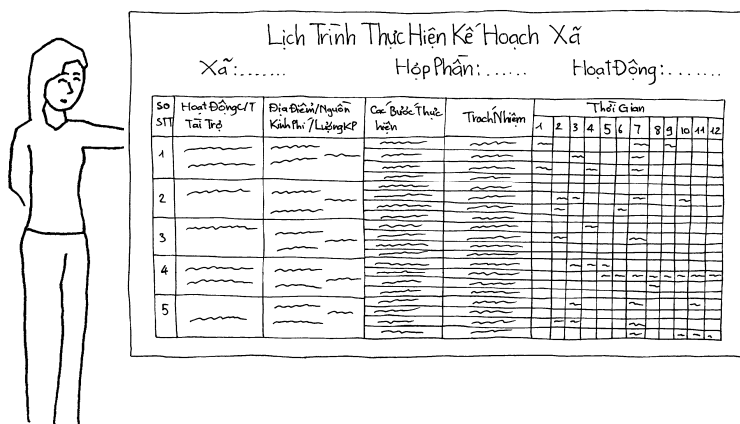 Lịch Trình Thực Hiện Kế Hoạch Xã
Xã:....... Hợp Phần:...... Hoạt Động:.......
SO STT
Hoạt Động C/T Tài Trợ
Địa Điểm/Nguồn Kinh Phí/Lượng KP
Các Bước Thực hiện
Trách Nhiệm
Thời Gian
1 2 3 4 5 6 7 8 9 10 11 12
1
2
3
4
5